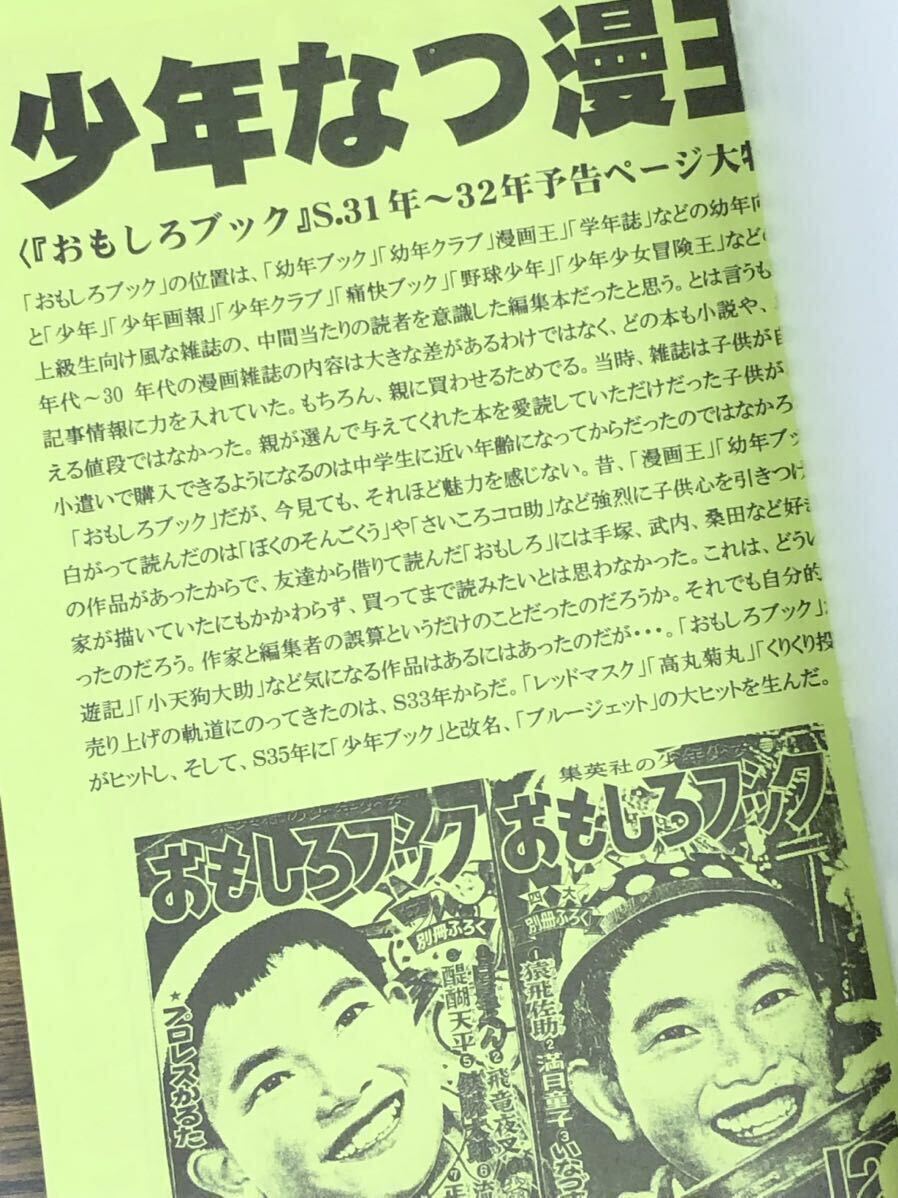 少年なつ漫王
〈『おもしろブック』S.31年～32年予告ページ大特
「おもしろブック」の位置は、「幼年ブック」「幼年クラブ」漫画王」「学年誌」などの幼年向
と「少年」「少年画報」「少年クラブ」「痛快ブック」「野球少年」「少年少女冒険王」などの
上級生向け風な雑誌の、中間当たりの読者を意識した編集本だったと思う。とは言うも
年代～30 年代の漫画雑誌の内容は大きな差があるわけではなく、どの本も小説や、
記事情報に力を入れていた。もちろん、親に買わせるためでる。当時、雑誌は子供が自
える値段ではなかった。親が選んで与えてくれた本を愛読していただけだった子供が、
小遣いで購入できるようになるのは中学生に近い年齢になってからだったのではなかろ
「おもしろブック」だが、今見ても、それほど魅力を感じない。昔、「漫画王」「幼年ブッ
白がって読んだのは「ぼくのそんごくう」や「さいころコロ助」など強烈に子供心を引きつけ
の作品があったからで、友達から借りて読んだ「おもしろ」には手塚、武内、桑田など好き
家が描いていたにもかかわらず、買ってまで読みたいとは思わなかった。これは、どうい
ったのだろう。作家と編集者の誤算というだけのことだったのだろうか。それでも自分的
遊記」「小天狗大助」など気になる作品はあるにはあったのだが・・・。「おもしろブック」
売り上げの軌道にのってきたのは、S33年からだ。「レッドマスク」「高丸菊丸」「くりくり投
がヒットし、そして、S35年に「少年ブック」と改名、「ブルージェット」の大ヒットを生んだ。
おもしろブック
別冊ふろく
★プロレスかるた
醍醐天平
②飛竜夜叉
集英社の少年少女
おもしろブック
四大
別冊ふろく
1猿飛佐助
2満月童子
3いなづ
12